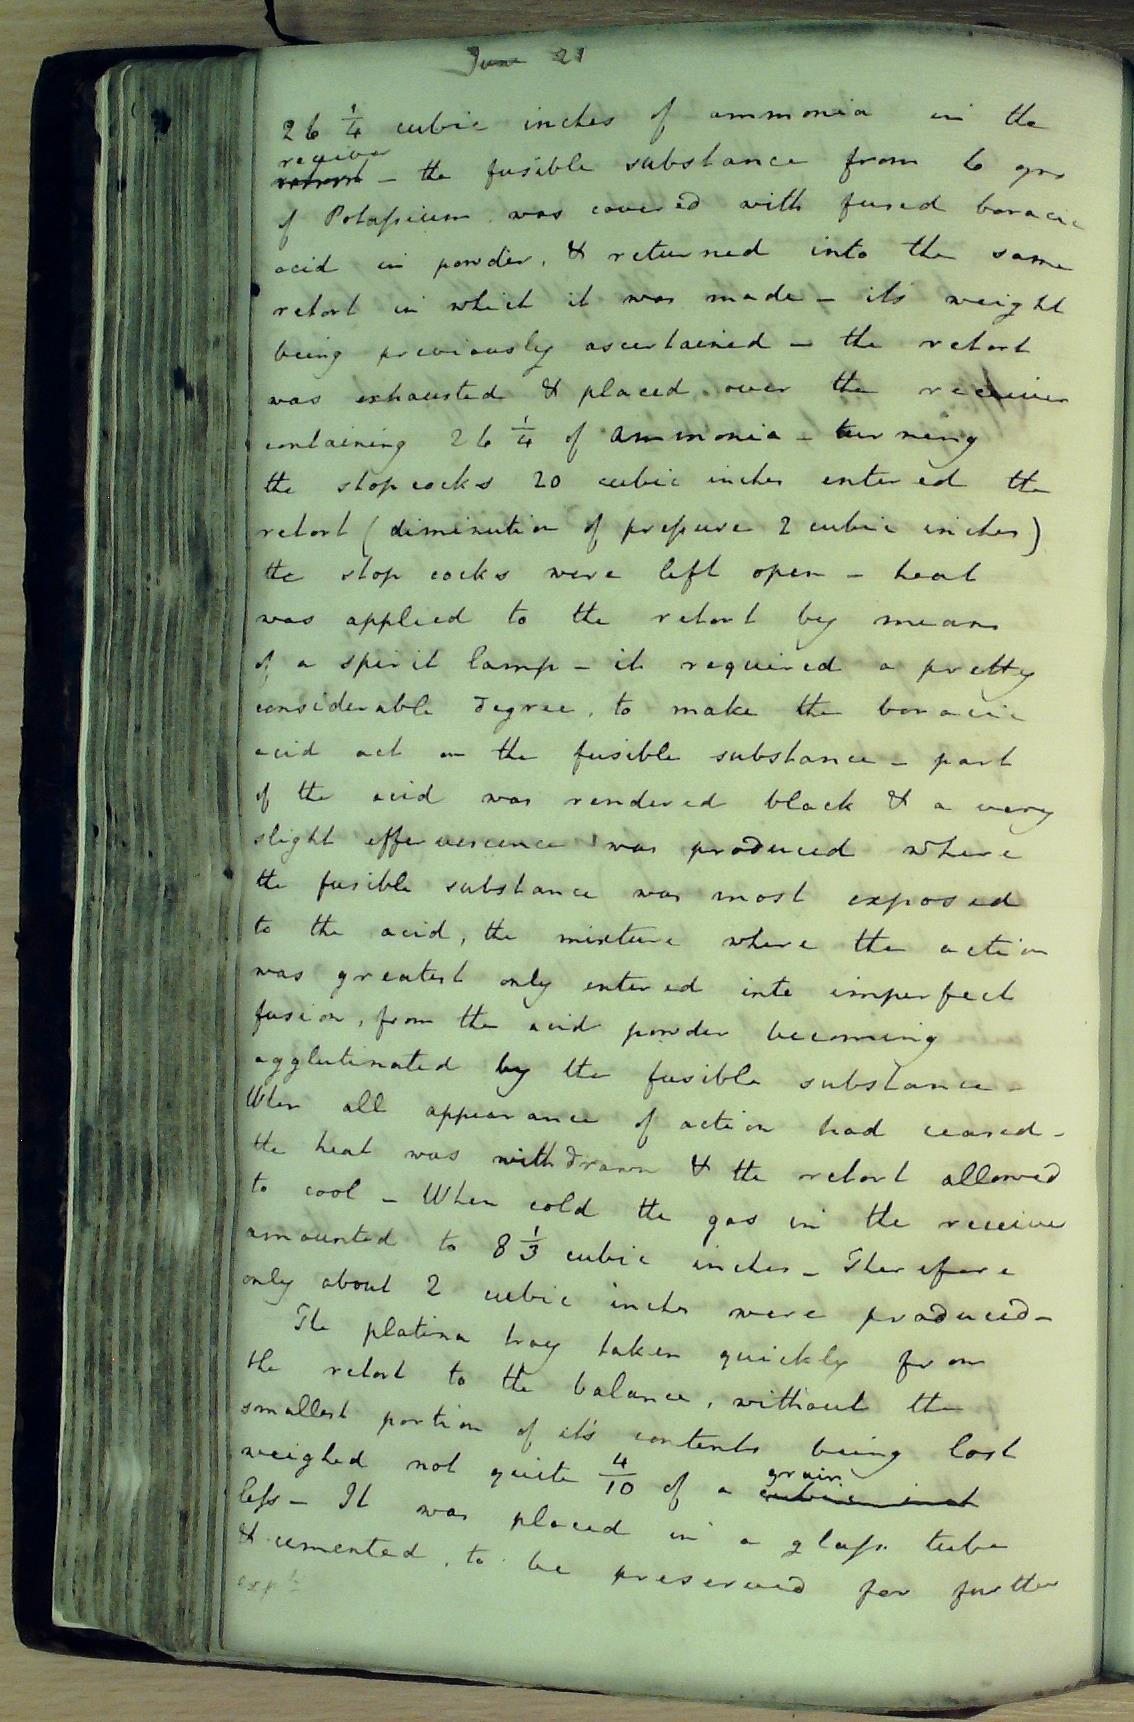 June 21
26 1/4 cubic inches of ammonia in the
receiver
retort – the fusible substance from 6 grs
of Potaſsium was covered with fused boracic
acid in powder, & returned into the same
retort in which it was made – it's weight
being previously ascertained – the retort
was exhausted & placed over the receiver
containing 26 1/4 of ammonia – turning
the stop cocks 20 cubic inches entered the
retort (diminution of preſsure 2 cubic inches)
the stop cocks were left open – heat
was applied to the retort by means
of a spirit lamp – it required a pretty
considerable degree, to make the boracic
acid act on the fusible substance – part
of the acid was rendered black & a very
slight effervescence was produced where
the fusible substance was most exposed
to the acid, the mixture where the action
was greatest only entered into imperfect
fusion, from the acid powder becoming
agglutinated by the fusible substance –
When all appearance of action had ceased –
the heat was withdrawn & the retort allowed
to cool – When cold the gas in the receiver
amounted to 8 1/3 cubic inches – Therefore
only about 2 cubic inches were produced –
The platina tray taken quickly from
the retort to the balance, without the
smallest portion of it's contents being lost
weighed not quite 4/10 of a cubic inch
grain
leſs – It was placed in a glaſs tube
& cemented, to be preserved for further
expt